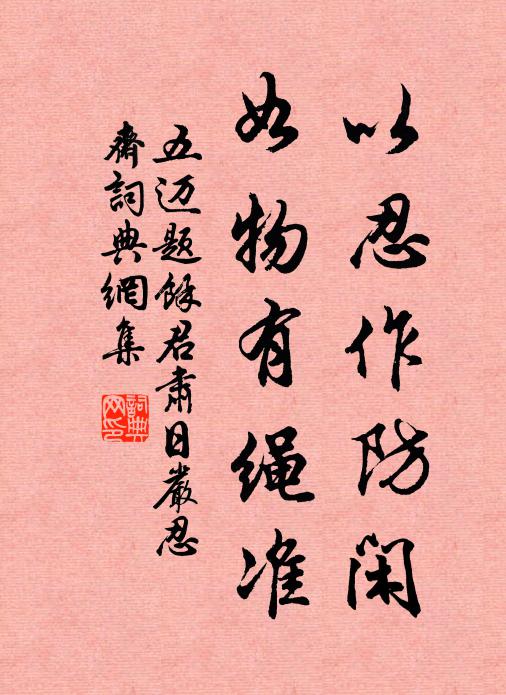 以忍作防闲
如物有绳准
五迈题馀君肃日严忍
斋词典网集
词典网印